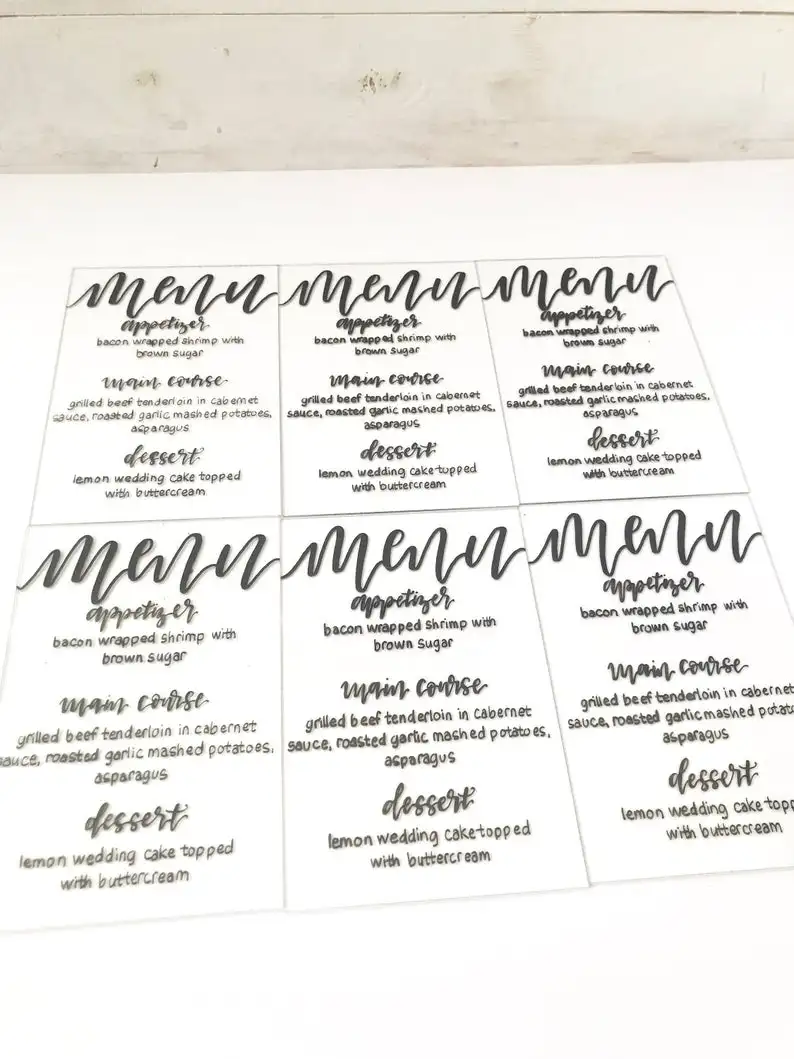 menu
appetizer
bacon wrapped shrimp with
brown sugar
main course
grilled beef tenderloin in cabernet
sauce, roasted garlic mashed potatoes,
asparagus
dessert
lemon wedding cake topped
with buttercream
menu
appetizer
bacon wrapped shrimp with
brown sugar
main course
grilled beef tenderloin in cabernet
sauce, roasted garlic mashed potatoes,
asparagus
dessert
lemon wedding cake topped
with buttercream
menu
appetizer
bacon wrapped shrimp with
brown sugar
main course
grilled beef tenderloin in cabernet
sauce, roasted garlic mashed potatoes,
asparagus
dessert
lemon wedding cake topped
with buttercream
menu
appetizer
bacon wrapped shrimp with
brown sugar
main course
grilled beef tenderloin in cabernet
sauce, roasted garlic mashed potatoes,
asparagus
dessert
lemon wedding cake topped
with buttercream
menu
appetizer
bacon wrapped shrimp with
brown sugar
main course
grilled beef tenderloin in cabernet
sauce, roasted garlic mashed potatoes,
asparagus
dessert
lemon wedding cake topped
with buttercream
menu
appetizer
bacon wrapped shrimp with
brown sugar
main course
grilled beef tenderloin in cabernet
sauce, roasted garlic mashed
asparagus
dessert
lemon wedding cake
with buttercream